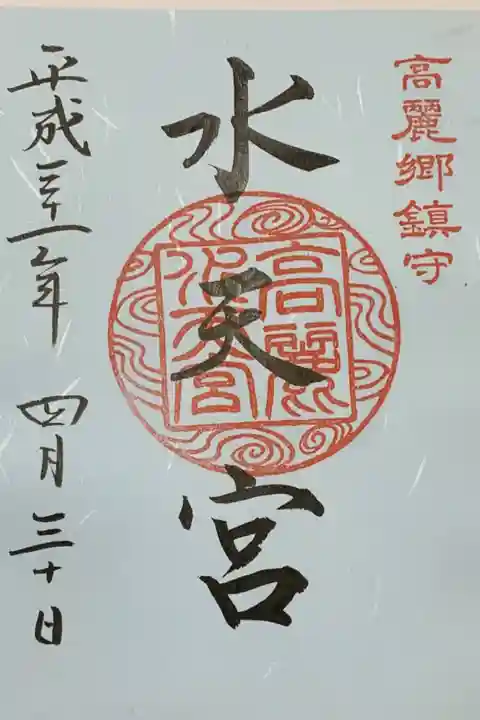 高麗郷鎮守
水天宮
高麗
水天宮
平成三十一年 四月三十日